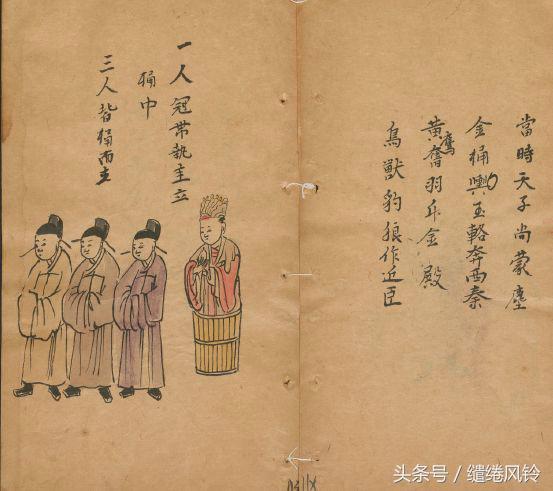 當時天子尚蒙塵
金桶輿玉輅奔西秦
黃鷹奮羽升金殿
鳥獸豹狼作近臣
一人冠帶執圭立
桶中
三人皆桶而立
头条号 / 缱绻风铃